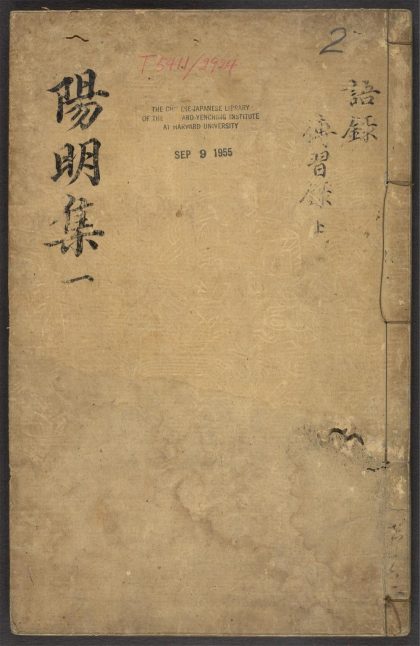 2
語錄
傳習錄 上
T 5411/2924
THE CHINESE-JAPANESE LIBRARY
OF THE HARVARD-YENCHING INSTITUTE
AT HARVARD UNIVERSITY
SEP 9 1955
陽明集 一